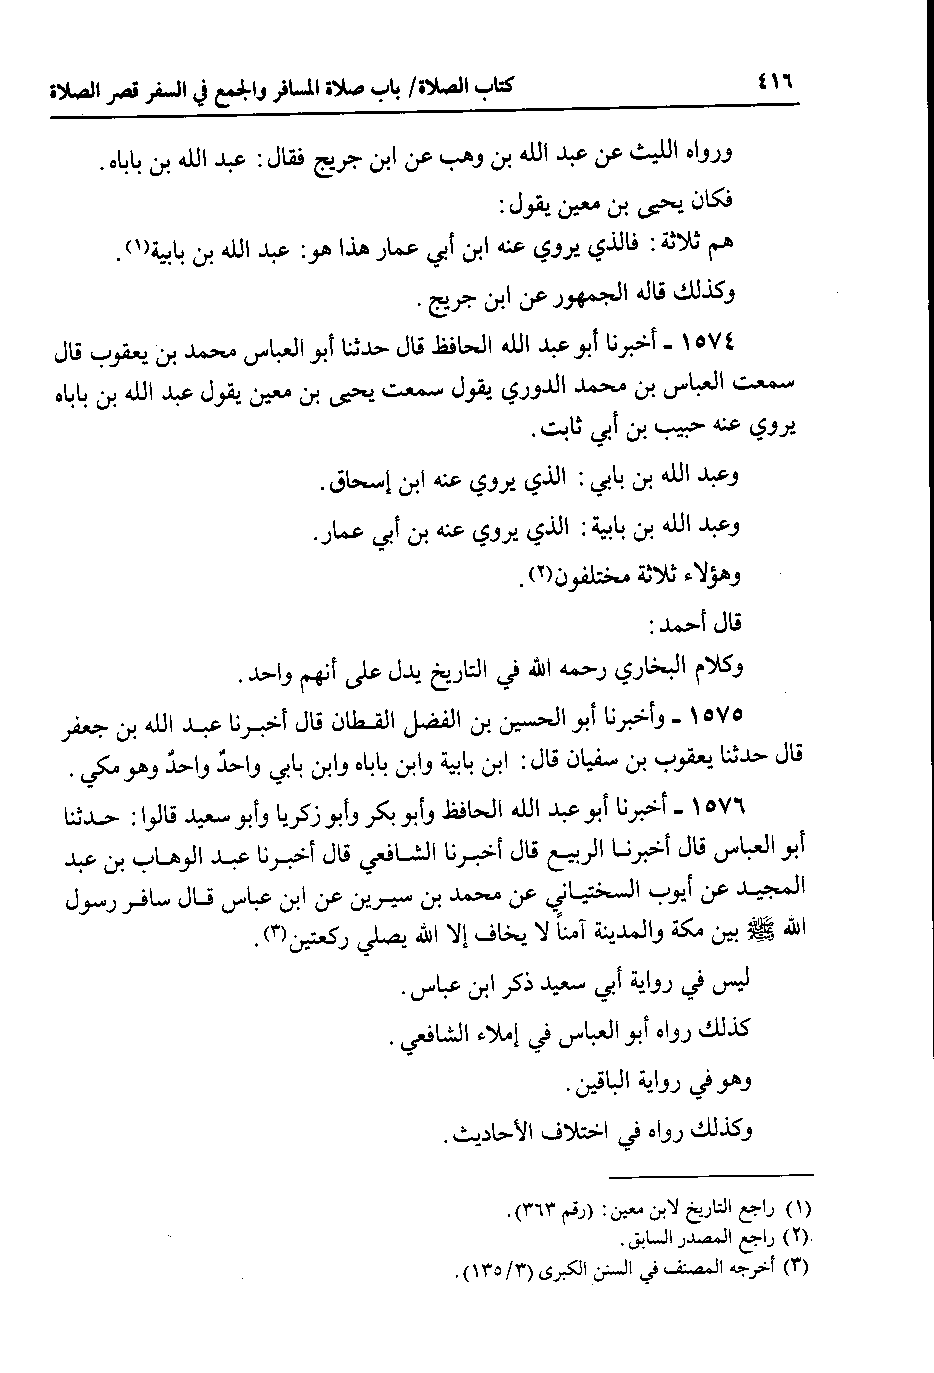 ٤١٦
كتاب الصلاة/ باب صلاة المسافر والجمع في السفر قصر الصلاة
ورواه الليث عن عبد الله بن وهب عن ابن جريج فقال: عبد الله بن باباه.
فكان يحيى بن معين يقول:
هم ثلاثة: فالذي يروي عنه ابن أبي عمار هذا هو: عبد الله بن بابية(١).
وكذلك قاله الجمهور عن ابن جريج.
١٥٧٤ - أخبرنا أبو عبد الله الحافظ قال حدثنا أبو العباس محمد بن يعقوب قال
سمعت العباس بن محمد الدوري يقول سمعت يحيى بن معين يقول عبد الله بن باباه
يروي عنه حبيب بن أبي ثابت.
وعبد الله بن بابي: الذي يروي عنه ابن إسحاق.
وعبد الله بن بابية: الذي يروي عنه بن أبي عمار.
وهؤلاء ثلاثة مختلفون(٢).
قال أحمد:
وكلام البخاري رحمه الله في التاريخ يدل على أنهم واحد.
١٥٧٥ - وأخبرنا أبو الحسين بن الفضل القطان قال أخبرنا عبد الله بن جعفر
قال حدثنا يعقوب بن سفيان قال: ابن بابية وابن باباه وابن بابي واحدٌ واحدٌ وهو مكي.
١٥٧٦ - أخبرنا أبو عبد الله الحافظ وأبو بكر وأبو زكريا وأبو سعيد قالوا: حدثنا
أبو العباس قال أخبرنا الربيع قال أخبرنا الشافعي قال أخبرنا عبد الوهاب بن عبد
المجيد عن أيوب السختياني عن محمد بن سيرين عن ابن عباس قال سافر رسول
الله ﷺ بين مكة والمدينة آمناً لا يخاف إلا الله يصلي ركعتين(٣).
ليس في رواية أبي سعيد ذكر ابن عباس.
كذلك رواه أبو العباس في إملاء الشافعي.
وهو في رواية الباقين.
وكذلك رواه في اختلاف الأحاديث.
(١) راجع التاريخ لابن معين: (رقم ٣٦٣).
(٢) راجع المصدر السابق.
(٣) أخرجه المصنف في السنن الكبرى (١٣٥/٣).